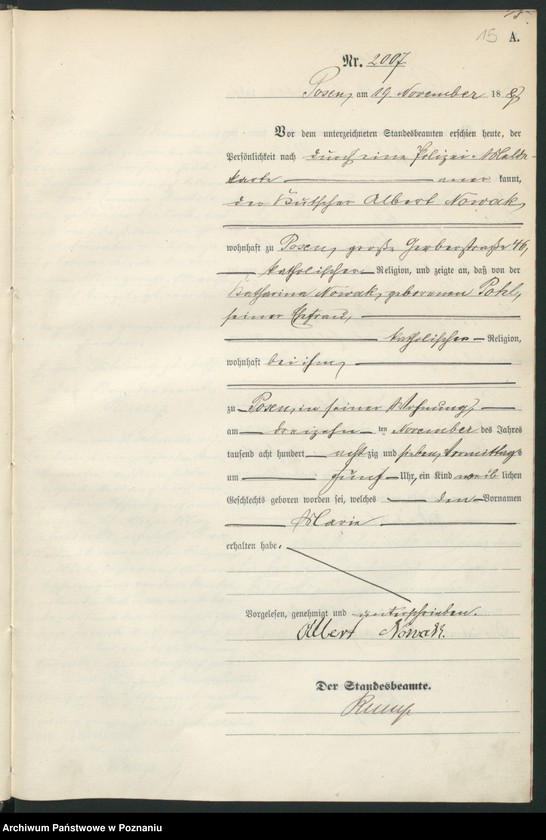 15 A.
Nr. 2007
Posen, am 19 November 1887
Vor dem unterzeichneten Standesbeamten erschien heute, der
Persönlichkeit nach durch eine Polizei-Melde-
karte aner kannt,
der Kutscher Albert Nowak,
wohnhaft zu Posen, große Gerberstraße 46,
katholischer Religion, und zeigte an, daß von der
Katharina Nowak, geborenen Pohl,
seiner Ehefrau,
katholischer Religion,
wohnhaft bei ihm,
zu Posen, in seiner Wohnung,
am dreizehn ten November des Jahres
tausend acht hundert acht zig und sieben, Vormittags
um fünf Uhr, ein Kind weib lichen
Geschlechts geboren worden sei, welches den Vornamen
Marie
erhalten habe.
Vorgelesen, genehmigt und unterschrieben.
Albert Nowak.
Der Standesbeamte.
Archiwum Państwowe w Poznaniu